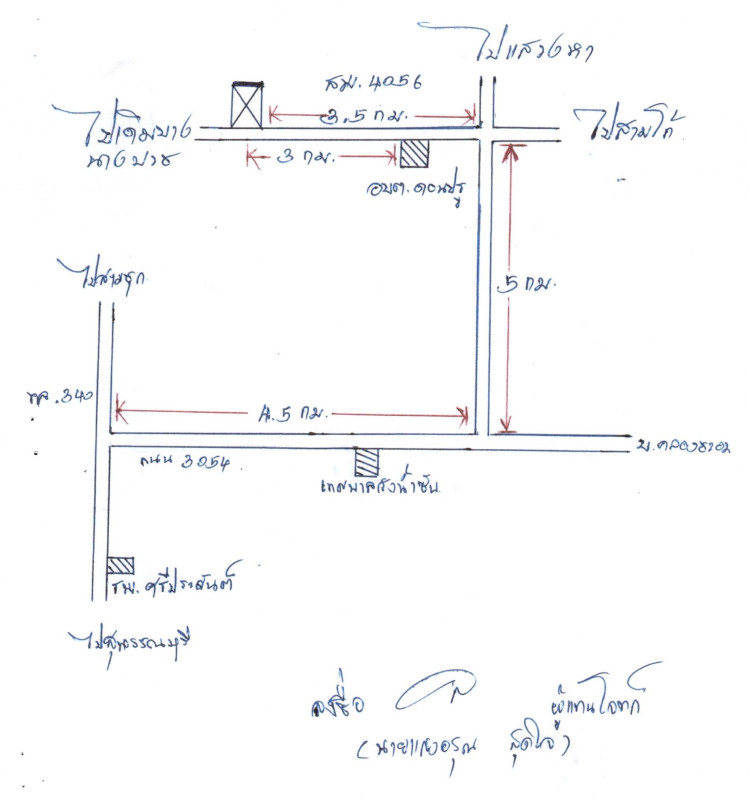 ไปแสวงหา
สพ. 4056
3.5 กม.
ไปเดิมบาง
นางบวช
ไปสามโก้
3 กม.
อบต. ดอนปรู
ไปสามชุก
5 กม.
ทล. 340
4.5 กม.
ถนน 3054
เทศบาลวังน้ำซับ
รพ. ศรีประจันต์
ไปสุพรรณบุรี
ลงชื่อ ผู้แทนโจทก์
(นายแสงอรุณ สุดใจ)